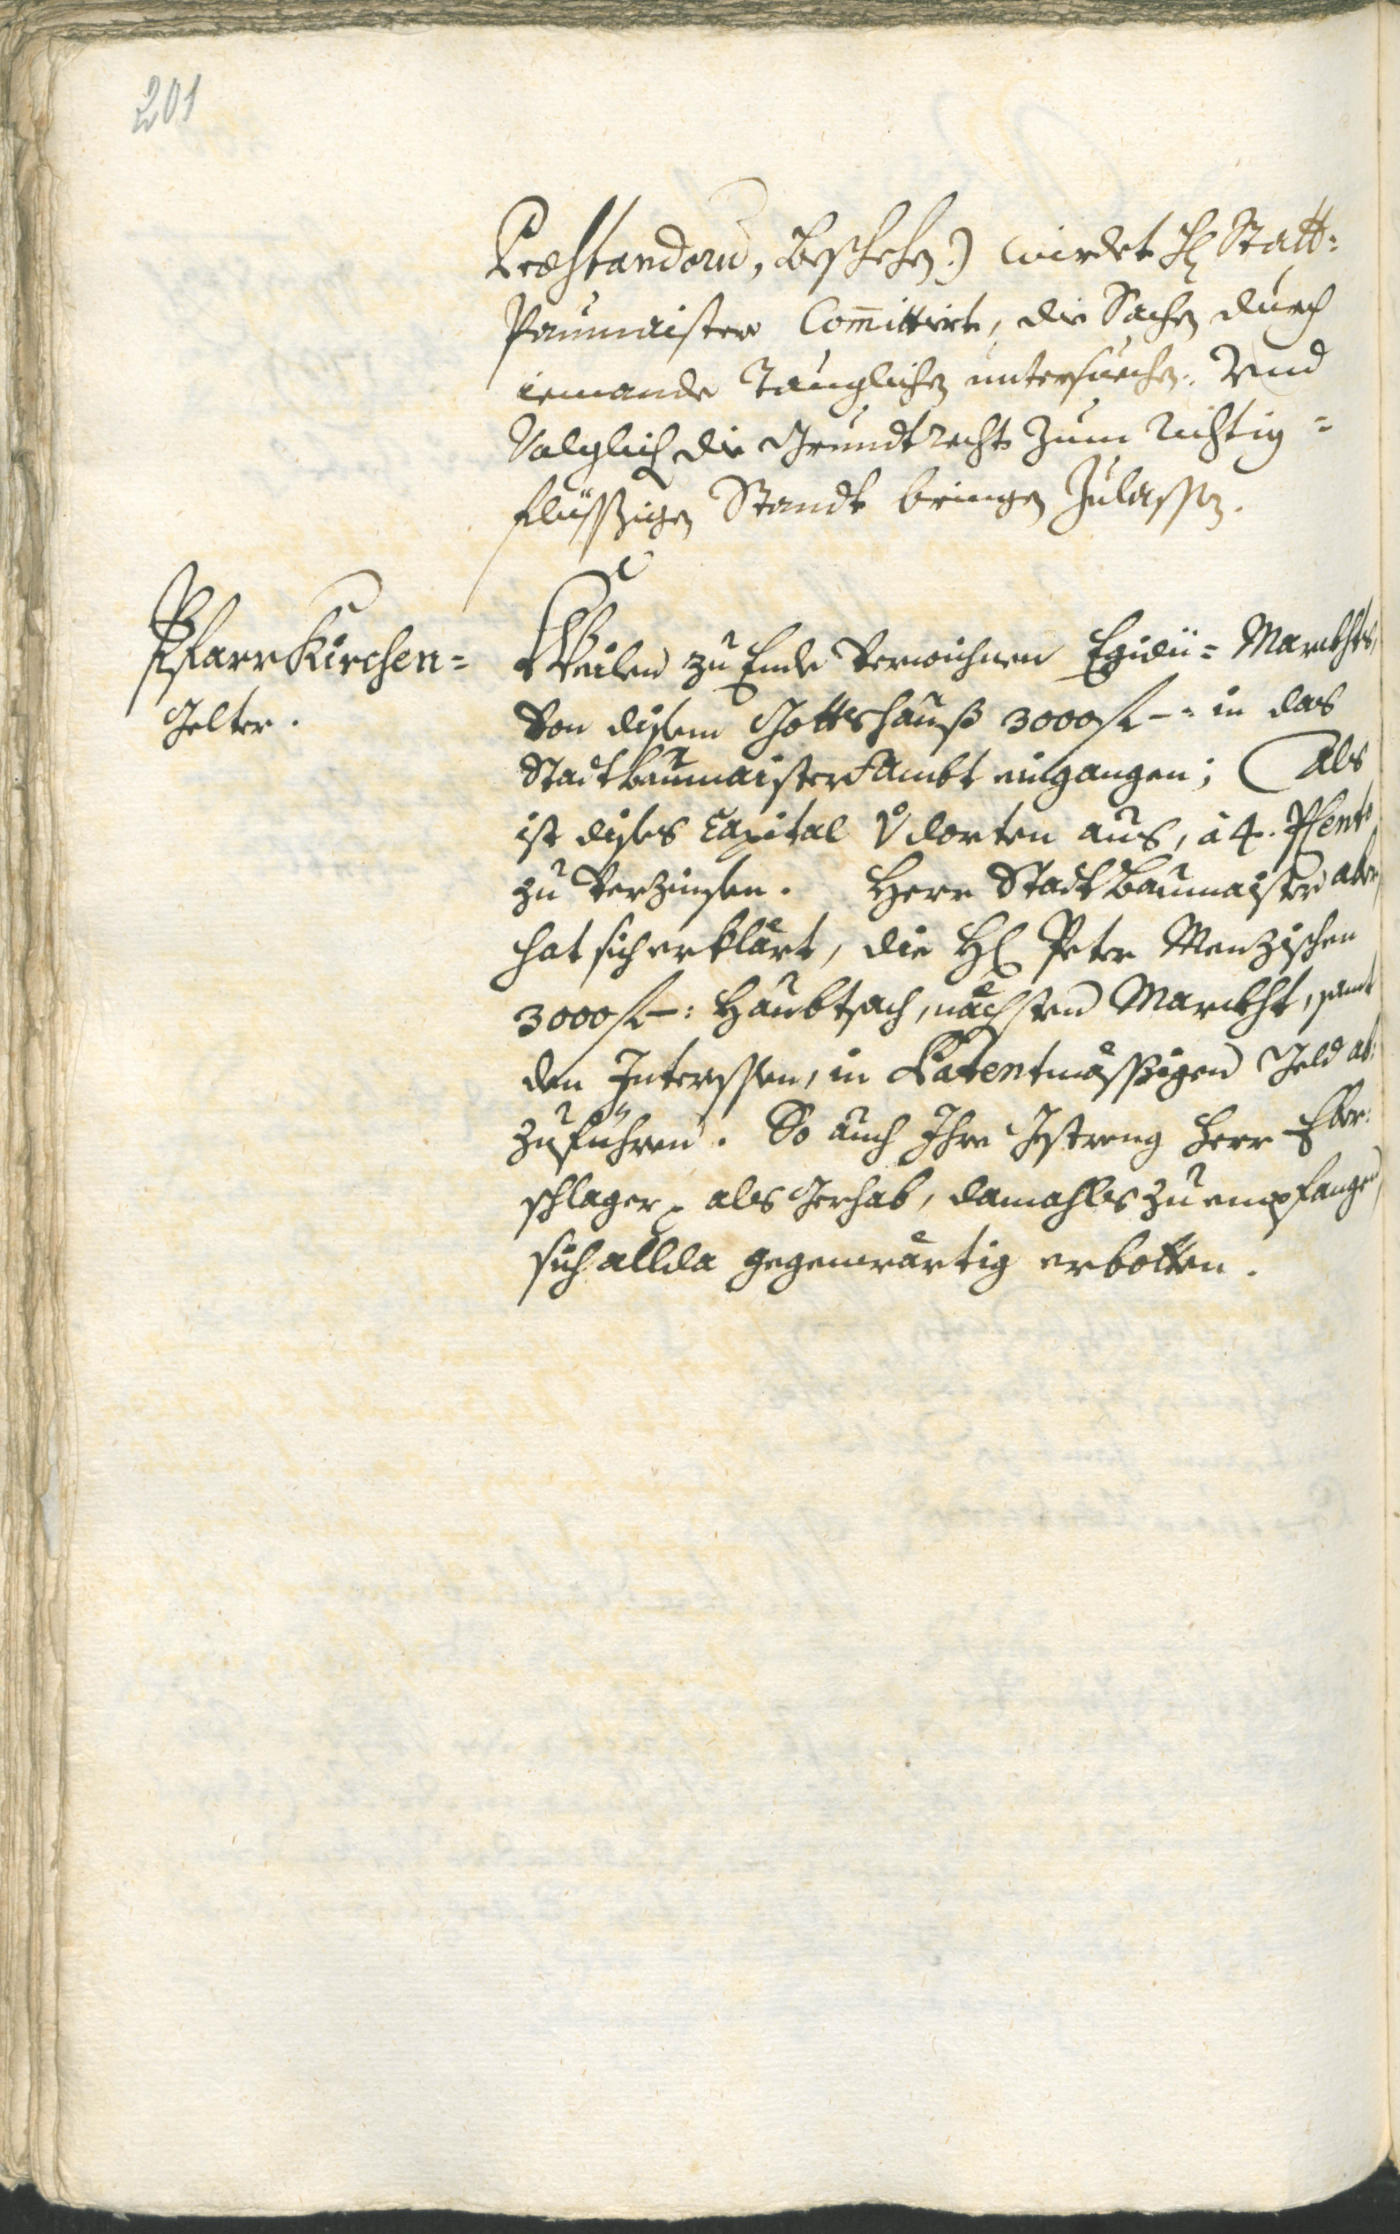 201
Præstandorū, beschehen:) wirdet H: Statt=
Paumaister Committirt, die Sachen durch
iemande Tauglichen untersuechen. Und
Volglich die Grundtrecht zum richtig=
flüssigen Standt bringen zulassen.
Pfarr Kirchen=
Gelter.
Weilen zu Ende verwichnen Egidii= Marckhts,
von disem Gottshauß 3000 fl -: in das
Stadtbaumaister Ambt eingangen; Als
ist dises Capital v dorten aus, à 4. P Cento
zu verzinsen. Herr Stadtbaumaister aber,
hat sich erklärt, die H: Peter Menzischen
3000 fl -: Haubtsach, nächsten Marckht, samt
den Interessen, in Patentmässigen Geld ab=
zuführen. So auch Ihre Gestreng Herr Eber=
schlager, als Gerhab, damahls zu empfangen,
sich allda gegenwärtig erbotten.